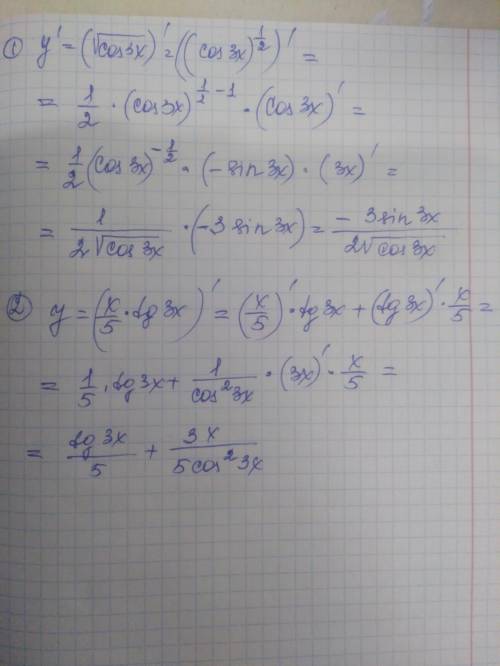 ① y' = (√cos3x)' = ((cos3x)^(1/2))' =
= 1/2 · (cos3x)^(1/2 - 1) · (cos3x)' =
= 1/2 (cos3x)^(-1/2) · (-sin3x) · (3x)' =
= 1/(2√cos3x) · (-3sin3x) = (-3sin3x)/(2√cos3x)
② y = (x/5 · tg3x)' = (x/5)' · tg3x + (tg3x)' · x/5 =
= 1/5 · tg3x + 1/(cos²3x) · (3x)' · x/5 =
= (tg3x)/5 + (3x)/(5cos²3x)